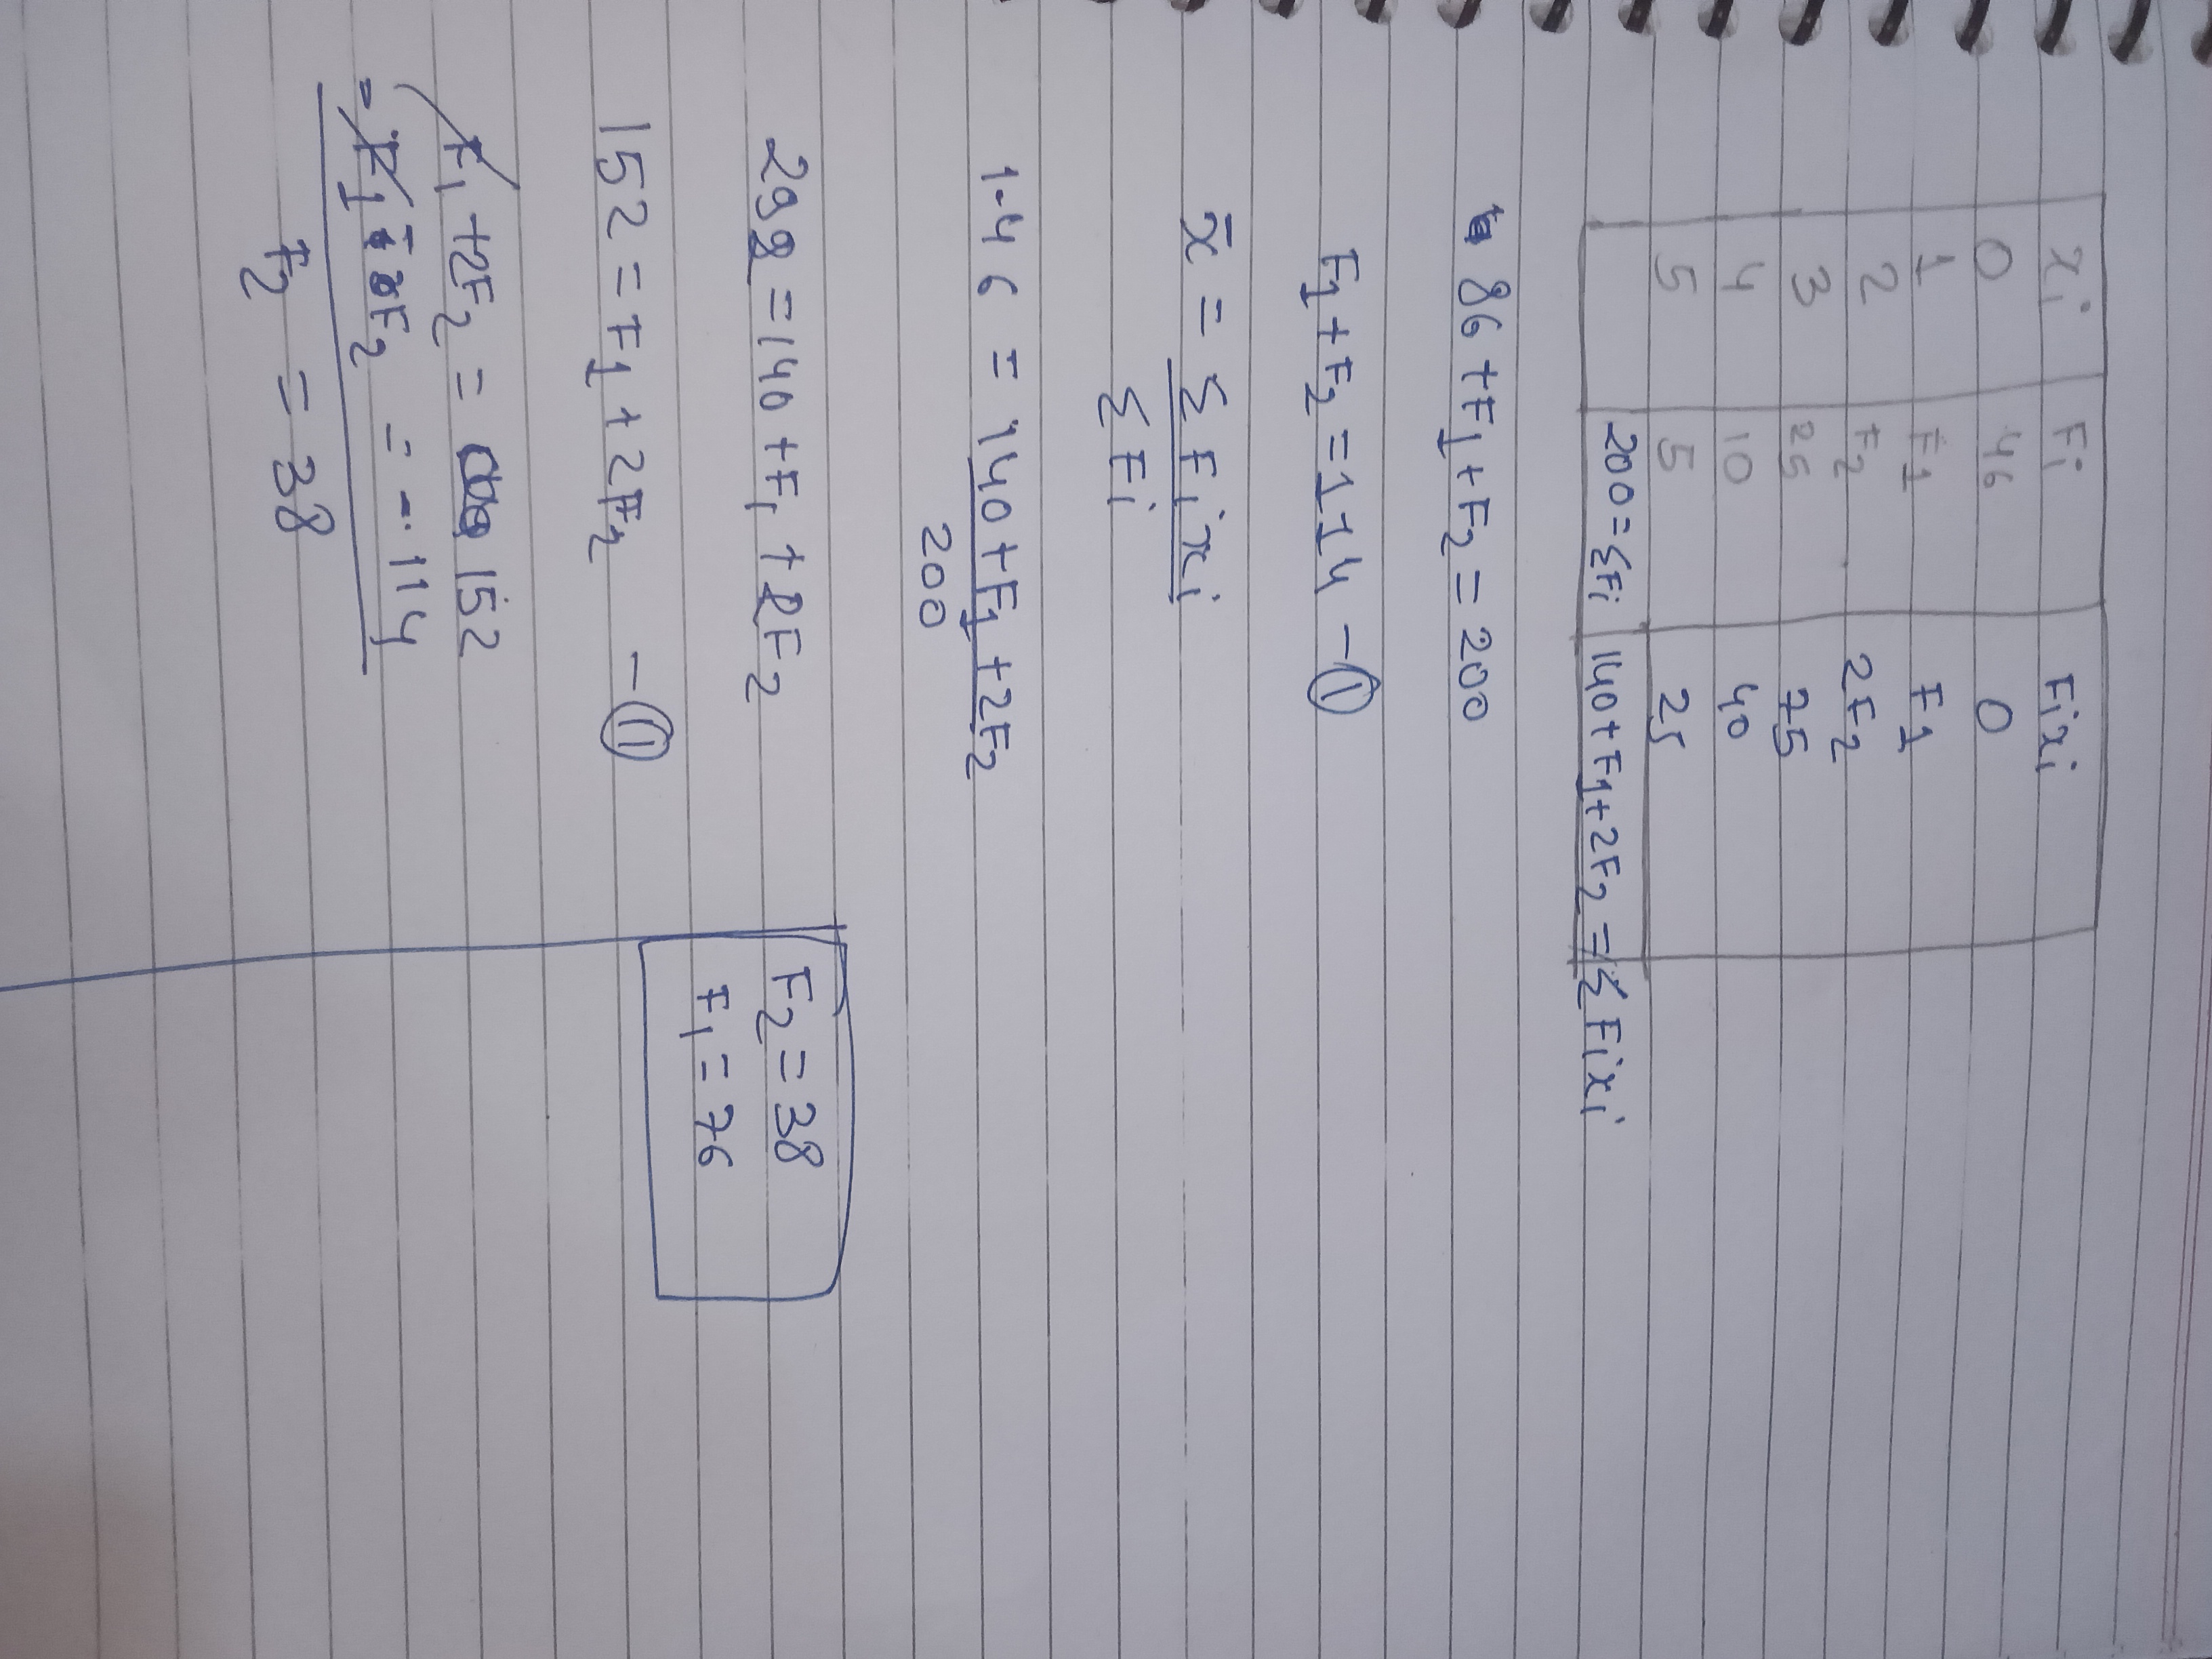 xi Fi Fixi
0 46 0
1 F1 F1
2 F2 2F2
3 25 75
4 10 40
5 5 25
200=ΣFi 140+F1+2F2=ΣFixi
86+F1+F2=200
F1+F2=114 -①
x̄ = ΣFixi
ΣFi
1.46 = 140+F1+2F2
200
292=140+F1+2F2
152=F1+2F2 -⑪
F1+2F2=152
-F1-F2 = -114
F2 = 38
F2=38
F1=76